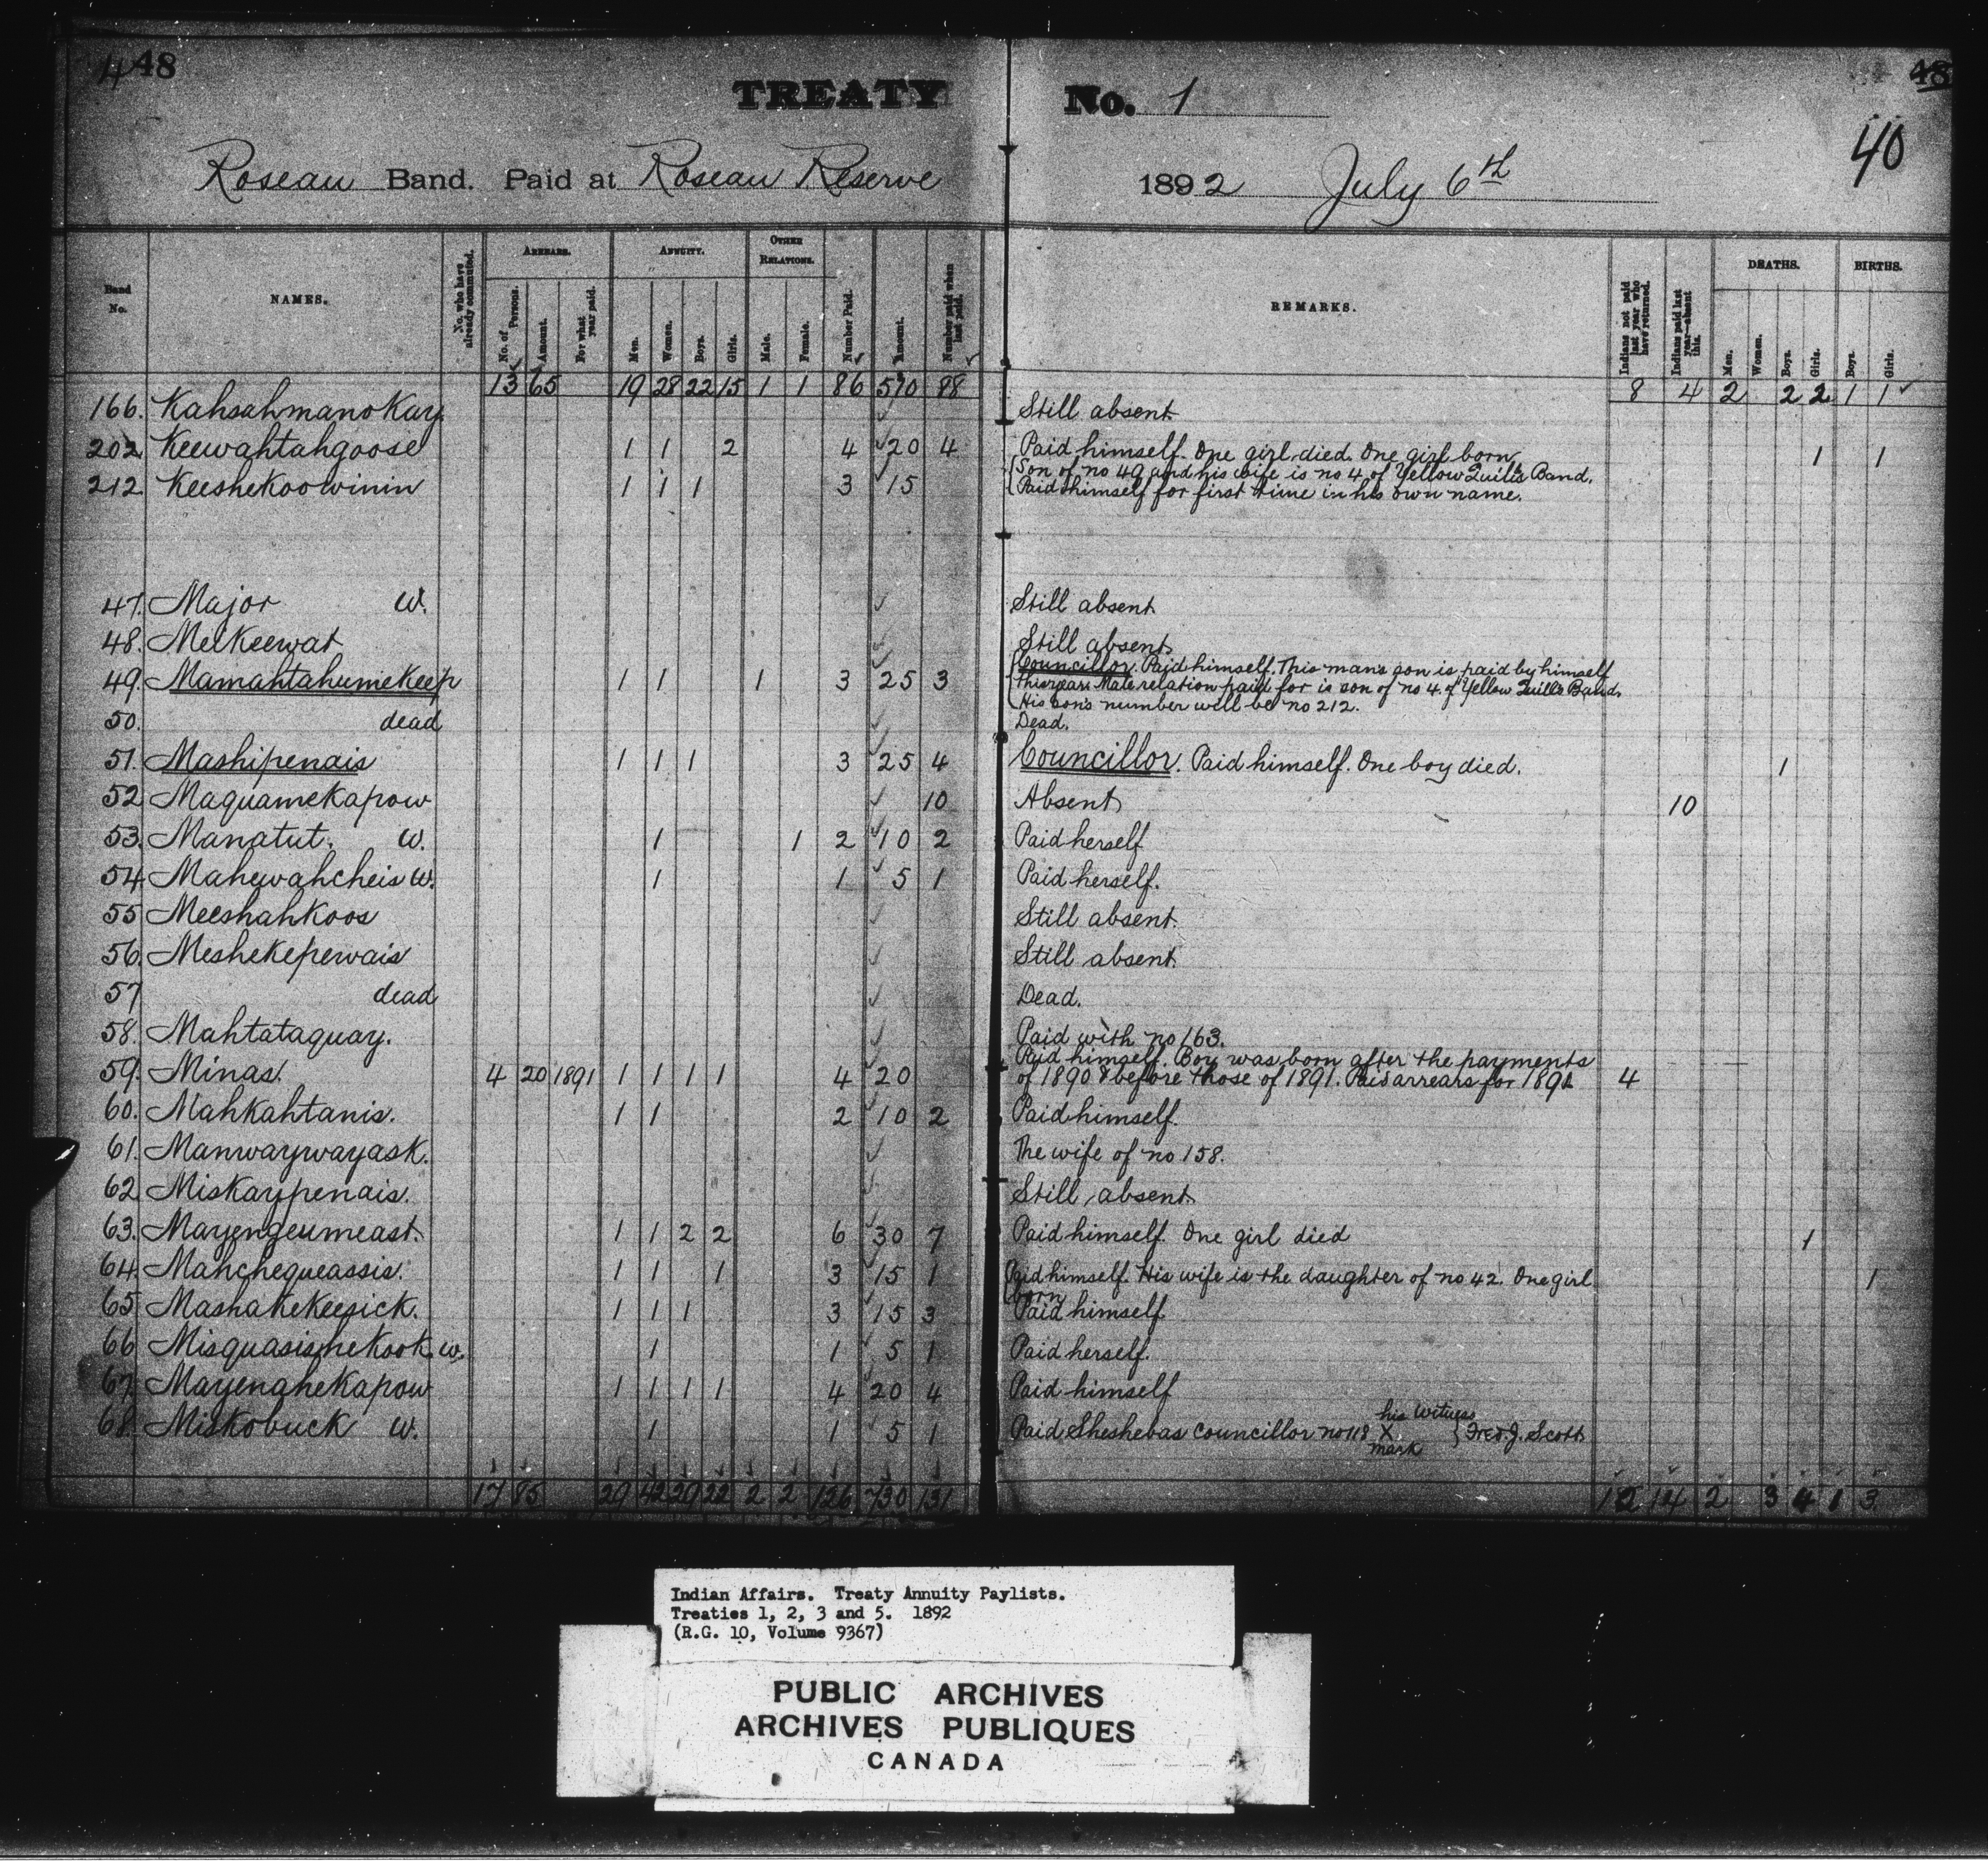 448
48
TREATY No. 1
40
Roseau Band. Paid at Roseau Reserve 1892 July 6th
Band No. NAMES. No. who have already commuted. ARREARS. No. of Persons. Amount. For what year paid. ANNUITY. Men. Women. Boys. Girls. OTHER RELATIONS. Male. Female. Number Paid. Amount. Number paid when last paid. REMARKS. Indians not paid last year who have returned. Indians paid last year—absent this. DEATHS. Men. Women. Boys. Girls. BIRTHS. Boys. Girls.
13 65 19 28 22 15 1 1 86 510 88 8 4 2 2 2 1 1
166. Kahsahmanokay. Still absent
202. Keewahtahgoose 1 1 2 4 20 4 Paid himself. One girl died. One girl born. 1 1
212. Keeshekoowinin 1 1 1 3 15 Son of no 49 and his wife is no 4 of Yellow Quill's Band.
Paid himself for first time in his own name.
47. Major W. Still absent
48. Melkeewat Still absent
49. Mamahtahumekeep 1 1 1 3 25 3 Councillor. Paid himself. This mans son is paid by himself
this year. Male relation paid for is son of no 4 of Yellow Quill's Band.
His sons number will be no 212.
50. dead Dead.
51. Mashipenais 1 1 1 3 25 4 Councillor. Paid himself. One boy died. 1
52 Maquamekapow 10 Absent 10
53. Manatut. W. 1 1 2 10 2 Paid herself
54 Mahewahcheis W. 1 1 5 1 Paid herself.
55 Meeshahkoos Still absent.
56. Meshekepewais Still absent.
57 dead Dead.
58. Mahtataquay. Paid with no 163.
59. Minas. 4 20 1891 1 1 1 1 4 20 Paid himself. Boy was born after the payments
of 1890 & before those of 1891. Paid arrears for 1891 4
60. Mahkahtanis. 1 1 2 10 2 Paid himself.
61. Manwaywayask. The wife of no 158.
62 Miskaypenais. Still absent
63. Mayengeumeast. 1 1 2 2 6 30 7 Paid himself. One girl died 1
64. Manchequeassis. 1 1 1 3 15 1 Paid himself. His wife is the daughter of no 42. One girl 1
born
65 Mashakekeesick. 1 1 1 3 15 3 Paid himself
66 Misquasishekook. w. 1 1 5 1 Paid herself.
67. Mayenahekapow 1 1 1 1 4 20 4 Paid himself
68. Miskobuck W. 1 1 5 1 Paid Sheshebas Councillor no 118 his X mark Witness } Fred. J. Scott
17 85 29 42 29 22 2 2 126 730 131 12 14 2 3 4 1 3
Indian Affairs. Treaty Annuity Paylists.
Treaties 1, 2, 3 and 5. 1892
(R.G. 10, Volume 9367)
PUBLIC ARCHIVES
ARCHIVES PUBLIQUES
CANADA